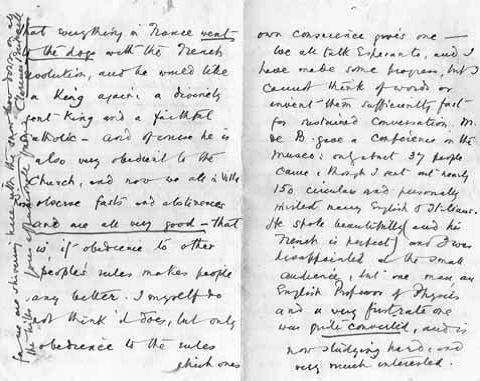 that everything in France went
to the dogs with the French
Revolution, and he would like
a King again: a divinely
sent King and a faithful
Catholic — and of course he is
also very obedient to the
Church, and now we all in the Villa
observe fasts and abstinences
and are all very good — that
is, if obedience to other
people's rules makes people
any better. I myself do
not think it does, but only
obedience to the rules
which ones
own conscience gives one —
We all talk Esperanto, and I
have made some progress, but I
cannot think of words or
invent them sufficiently fast
for sustained conversation. M.
de B. gave a conférence in the
Museo: only about 37 people
came, though I sent out nearly
150 circulars and personally
invited many English & Italians.
He spoke beautifully (and his
French is perfect) and I was
disappointed at the small
audience, but one man, an
English Professor of Physics
and a very first rate one
was quite converted, and is
now studying hard, and
very much interested.
we are shivering here with the snow then down on all
the hills
Yours affectionately
Clarence Bicknell